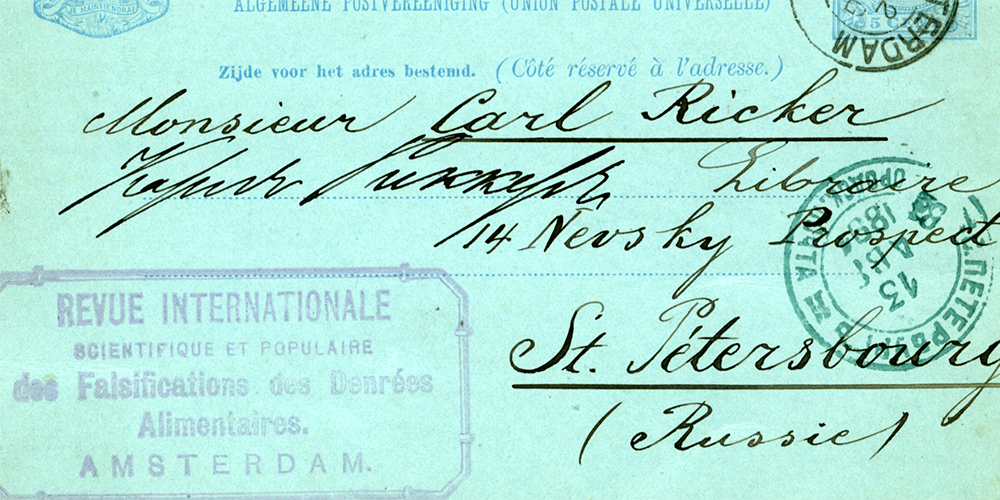 JE MAINTIENDRAI
ALGEMEENE POSTVEREENIGING (UNION POSTALE UNIVERSELLE)
5 CENT
ERDAM
Zijde voor het adres bestemd. (Côté réservé à l'adresse.)
Monsieur Carl Ricker
Libraire
14 Nevsky Prospect
St. Pétersbourg
(Russie)
REVUE INTERNATIONALE
SCIENTIFIQUE ET POPULAIRE
des Falsifications des Denrées
Alimentaires.
AMSTERDAM.
13
АВГ
189
ПОЧТА